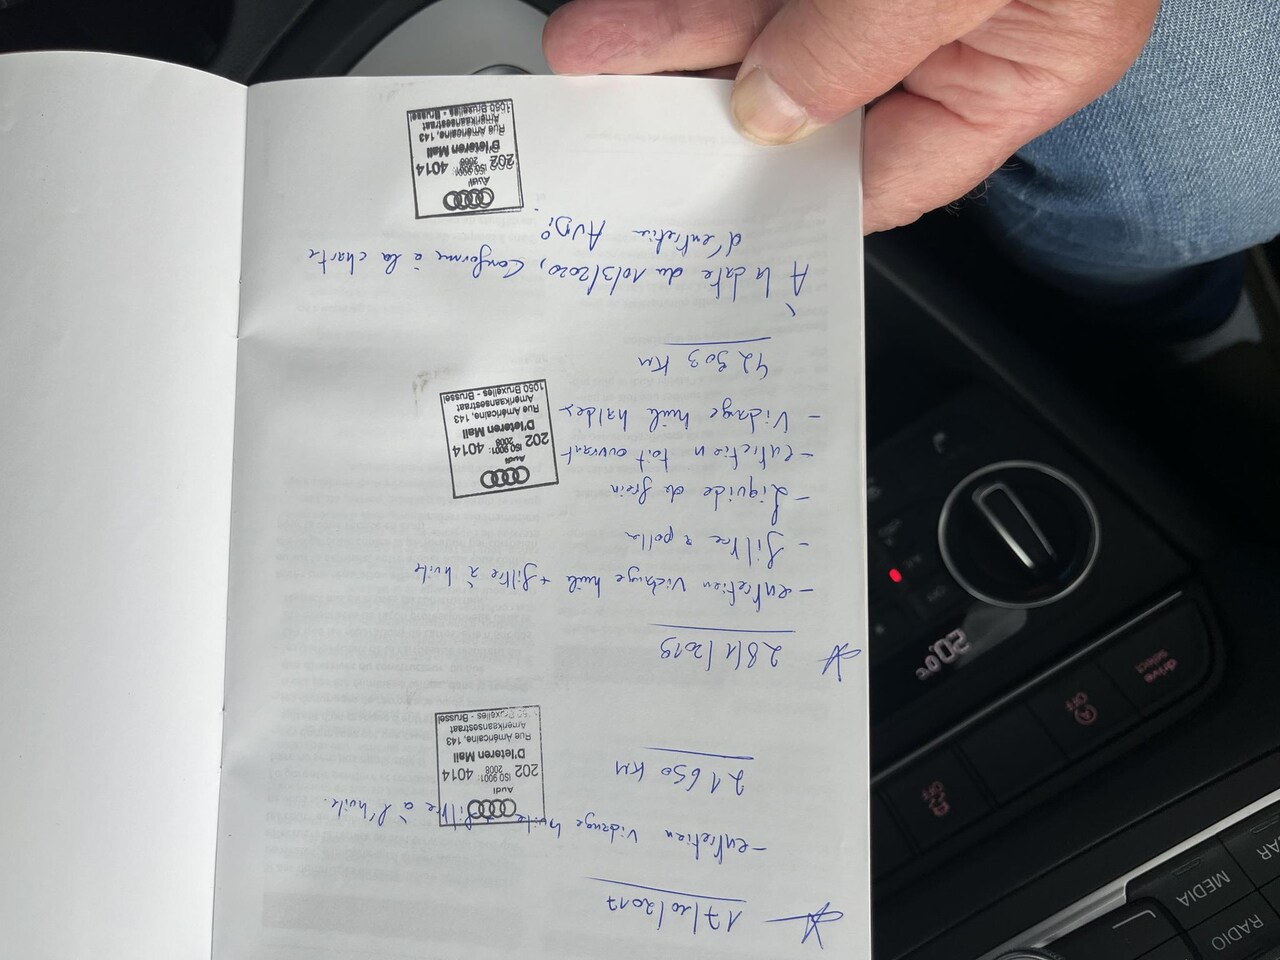 17/10/2017
- entretien vidange huile + filtre à l'huile.
21650 KM
Audi
ISO 9001:
2008
202 4014
D'Ieteren Mail
Rue Américaine, 143
Amerikaansestraat
1050 Bruxelles - Brussel
28/1/2019
- entretien vidange huile + filtre à huile
- filtre a pollen
- Liquide de frein
- entretien toit ouvrant
- Vidange huile haldex
42 903 KM
Audi
ISO 9001:
2008
202 4014
D'Ieteren Mail
Rue Américaine, 143
Amerikaansestraat
1050 Bruxelles - Brussel
À la date du 10/3/2020, Conforme à la charte
d'entretien Audi
Audi
ISO 9001:
2008
202 4014
D'Ieteren Mail
Rue Américaine, 143
Amerikaansestraat
1050 Bruxelles - Brussel
20.0°C
drive
select
OFF
OFF
MEDIA
RADIO